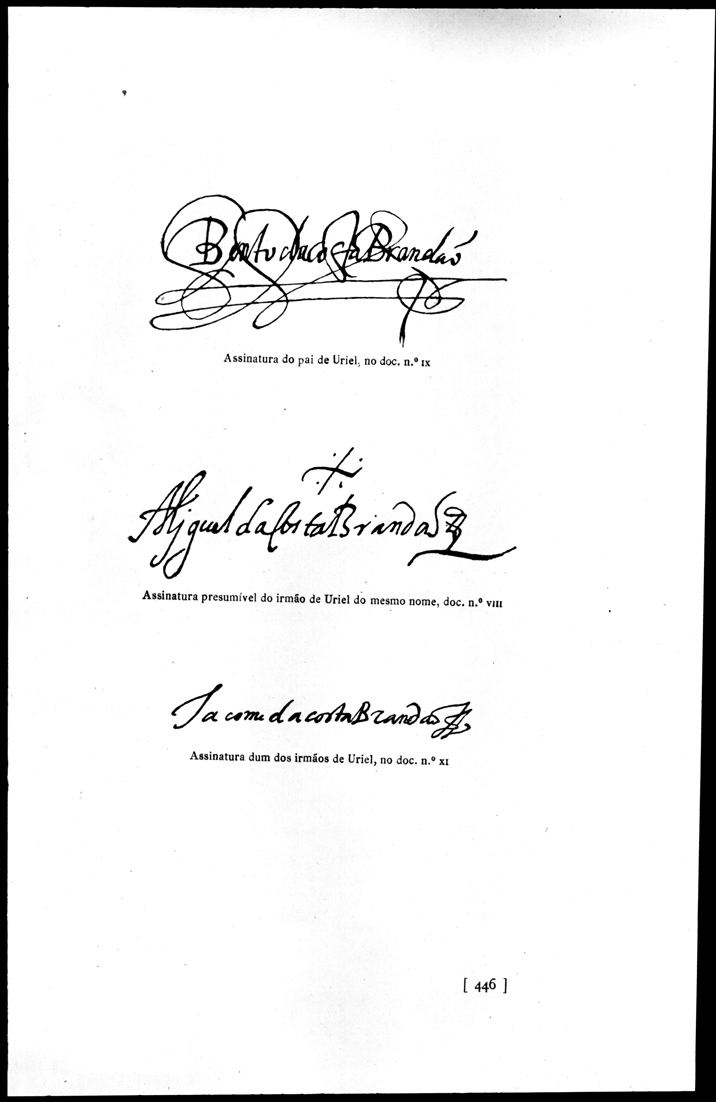 Bento da costa Brandaó
Assinatura do pai de Uriel, no doc. n.º IX
Miguel da Costa Brandaõ
Assinatura presumível do irmão de Uriel do mesmo nome, doc. n.º VIII
Jacome da costa Brandaõ
Assinatura dum dos irmãos de Uriel, no doc. n.º XI
[ 446 ]